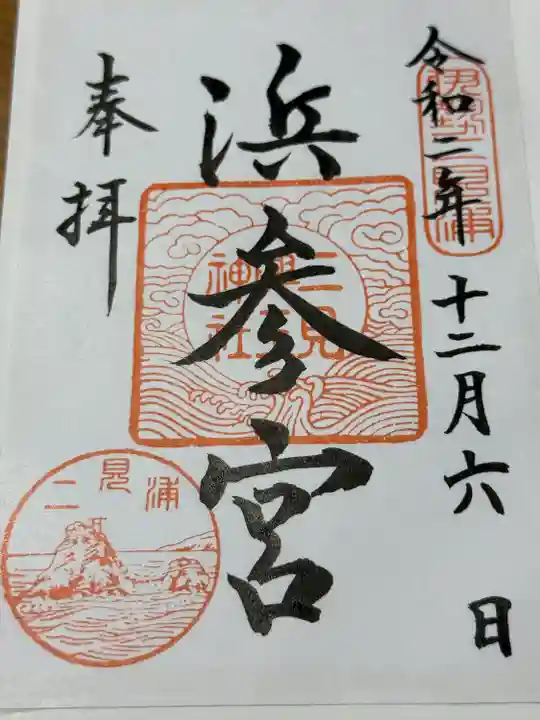 令和二年十二月六日
伊勢二見浦
浜参宮
二見興玉神社
奉拝
二見浦